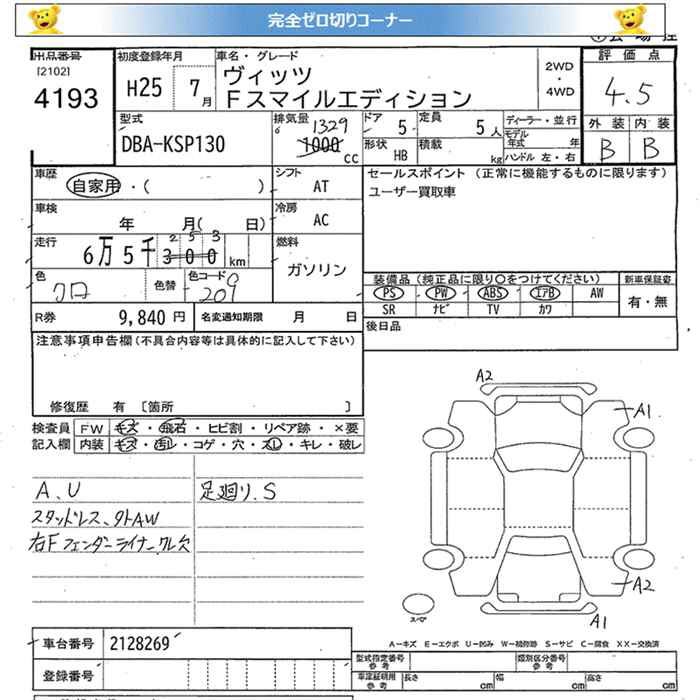 完全ゼロ切りコーナー
出品番号
[2102]
4193
初度登録年月
H25 7月
車名・グレード
ヴィッツ
Fスマイルエディション
2WD
・
4WD
評価点
4.5
外装 内装
B B
型式
DBA-KSP130
排気量
1329
1000 CC
ドア 5
定員 5人
形状 HB
積載 kg
ディーラー・並行
モデル年式 年
ハンドル 左・右
車歴
自家用・( )
シフト AT
車検
年 月( 日)
冷房 AC
走行
253
6万5千300km
燃料
ガソリン
色
クロ
色替
色コード
209
R券 9,840円
名変通知期限 月 日
セールスポイント (正常に機能するものに限ります)
ユーザー買取車
装備品 (純正品に限り〇をつけてください)
新車保証書
PS PW ABS エアB AW
SR ナビ TV カワ
有・無
後日品
注意事項申告欄 (不具合内容等は具体的に記入して下さい)
修復歴 有 [箇所 ]
検査員 FW キズ・飛石・ヒビ割・リペア跡・×要
記入欄 内装 キズ・汚レ・コゲ・穴・スレ・キレ・破レ
A、U
足廻り.S
スタッドレス、外AW
右Fフェンダーライナークリ欠
A2
A1
A2
A1
スペア
A=キズ E=エクボ U=凹み W=補修跡 S=サビ C=腐食 XX=交換済
車台番号 2128269
登録番号
型式指定番号
参考
類別区分番号
参考
車庫証明用
参考
長さ cm 幅 cm 高さ cm